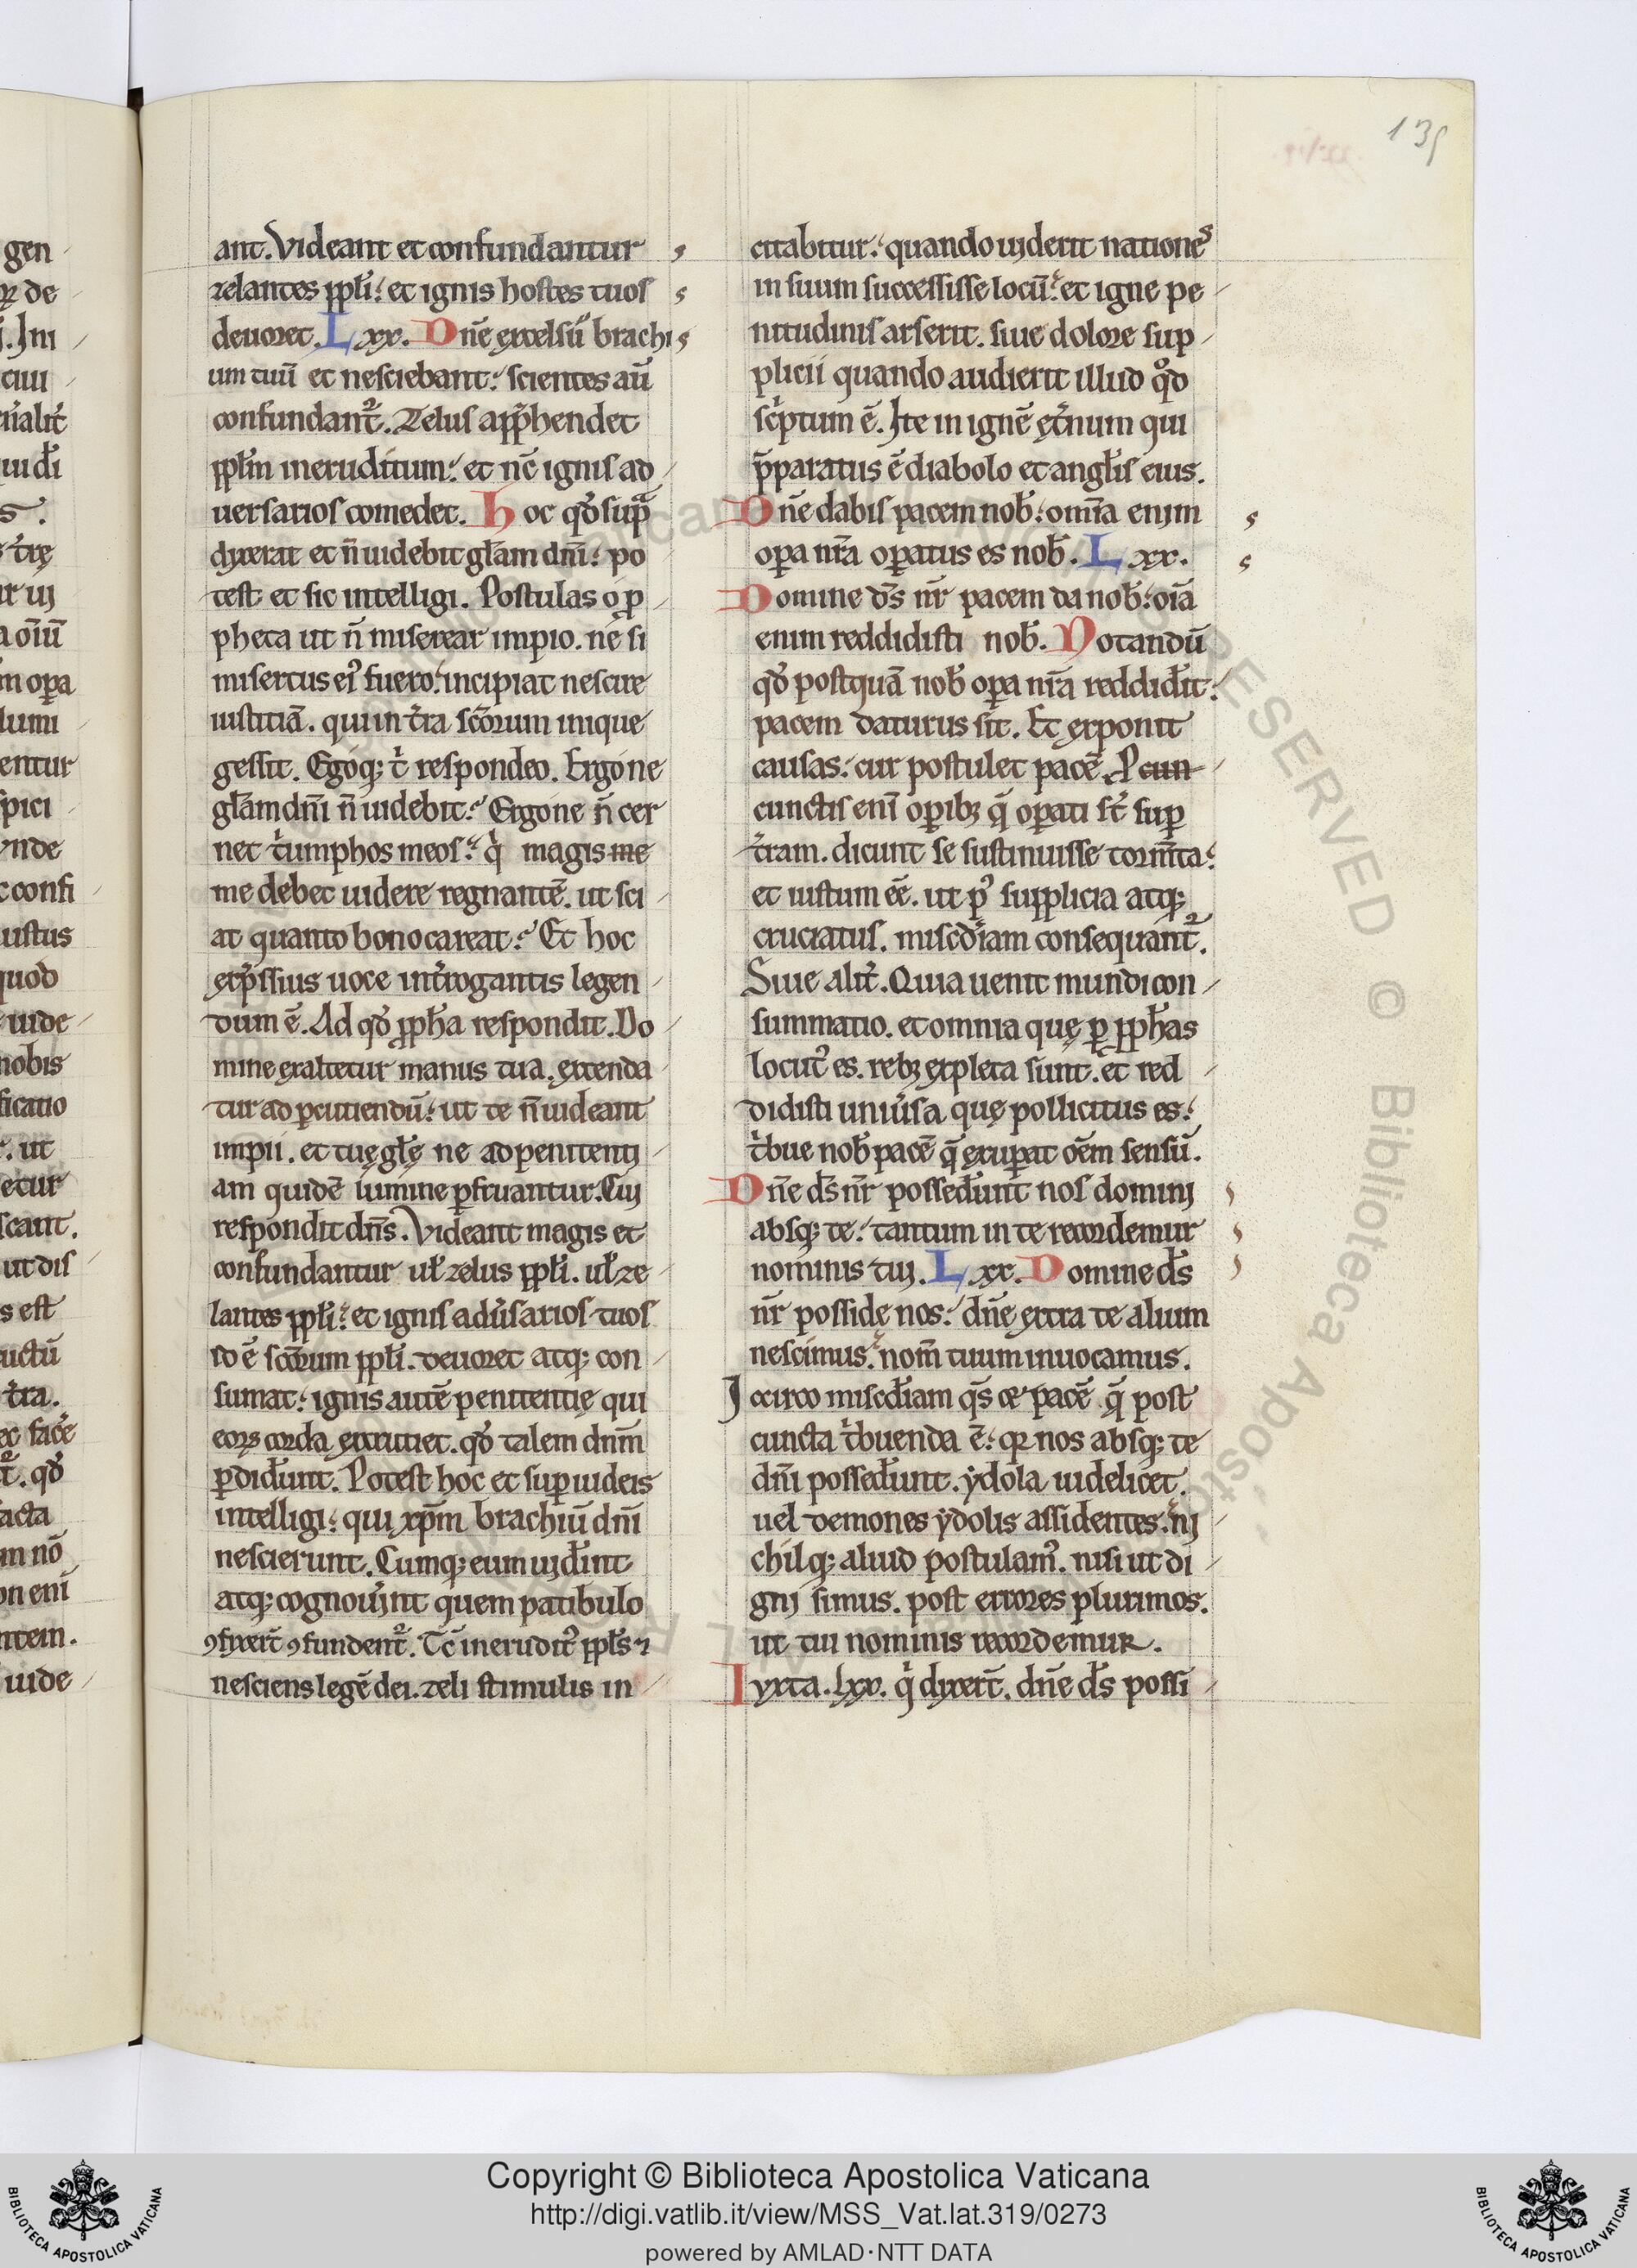 135
ant. Videant et confundantur
zelantes ppłi: et ignis hostes tuos
deuoret. Lxx. Dn̄e excelsū brachi
um tuū et nesciebant: scientes aū
confundant᷑. Zelus app̄hendet
ppłm ineruditum: et nc̄ ignis ad
uersarios comedet. Hoc qđ sup͛
dixerat et n̄ uidebit gl̄am dn̄i: po
test et sic intelligi. Postulas o ꝓ
pheta ut n̄ miserear impio. ne si
misertus ei᷒ fuero: incipiat nescire
iustitiā. qui in t̄ra sc̄orum inique
gessit. Egoq; t͛ respondeo. Ergone
gl̄am dn̄i n̄ uidebit: Ergone n̄ cer
net t͛umphos meos: q͛ magis me
me debet uidere regnantē. ut sci
at quanto bono careat: Et hoc
exp͛ssius uoce int̄rogantis legen
dum ē. Ad qđ ꝓpħa respondit. Do
mine exaltetur manus tua. extenda
tur ad ꝑcutiendū: ut te n̄ uideant
impii. et tuę gl̄ę ne ad penitenti
am quidē lumine ꝑfruantur. Cui
respondit dn̄s. Videant magis et
confundantur uł zelus ppłi. uł ze
lantes ppłi: et ignis adu͛sarios tuos
id ē sc̄orum ppłi. deuoret atq; con
sumat: ignis autē penitentię qui
eoꝝ corda excutiet. qđ talem dn̄m
ꝑdiđunt. Potest hoc et suꝑ iudeis
intelligi: qui xp̄m brachiū dn̄i
nescierunt. Cumq; eum uiđint
atq; cognou͛int quem patibulo
ꝯfixer̄t ꝯfundent᷑. Tc̄ inerudit᷒ ppłs ⁊
nesciens legē dei. zeli stimulis in
citabitur: quando uiderit nationes
in suum successisse locū: et igne pe
nitudinis arserit. siue dolore sup
plicii quando audierit illud qᵒd
sc͛ptum ē. Ite in ignē ęt͛num qui
p̄paratus ē diabolo et angłis eius.
Dn̄e dabis pacem nob̄: omīa enim
oꝑa nr̄a oꝑatus es nob̄. Lxx.
Domine dš nr̄ pacem da nob̄: oīa
enim reddidisti nob̄. Notandū
qđ postquā nob̄ oꝑa nr̄a reddiđit:
pacem daturus sit. Et exponit
causas: cur postulet pacē. P cun
cunctis enī oꝑibꝫ q̄ oꝑati st̄ suꝑ
t̄ram. dicunt se sustinuisse torm̄ta:
et iustum eē. ut p᷒ supplicia atq;
cruciatus. miscđiam consequant᷑.
Siue alit͛. Quia uenit mundi con
summatio. et omnia quę ꝑ ꝓpħas
locut᷒ es. rebꝫ expleta sunt. et red
didisti uniu͛sa quę pollicitus es:
t͛bue nob̄ pacē q̄ exuꝑat oēm sensū.
Dn̄e dš nr̄ posseđunt nos domini
absq; te: tantum in te recordemur
nominis tui. Lxx. Domine dš
nr̄ posside nos: dn̄e extra te alium
nescimus: nom̄ tuum inuocamus.
Iccirco miscđiam qš ce pacē q̄ post
cuncta t͛buenda ē: qꝛ nos absq; te
dn̄i posseđunt. ydola uidelicet.
uel demones ydolis assidentes: ni
chilq; aliud postulam᷒. nisi ut di
gni simus. post errores plurimos.
ut tui nominis recordemur.
Iuxta .lxx. q͛ dixer̄t. dn̄e dš possi
Copyright © Biblioteca Apostolica Vaticana
http://digi.vatlib.it/view/MSS_Vat.lat.319/0273
powered by AMLAD·NTT DATA
BIBLIOTECA APOSTOLICA VATICANA
BIBLIOTECA APOSTOLICA VATICANA